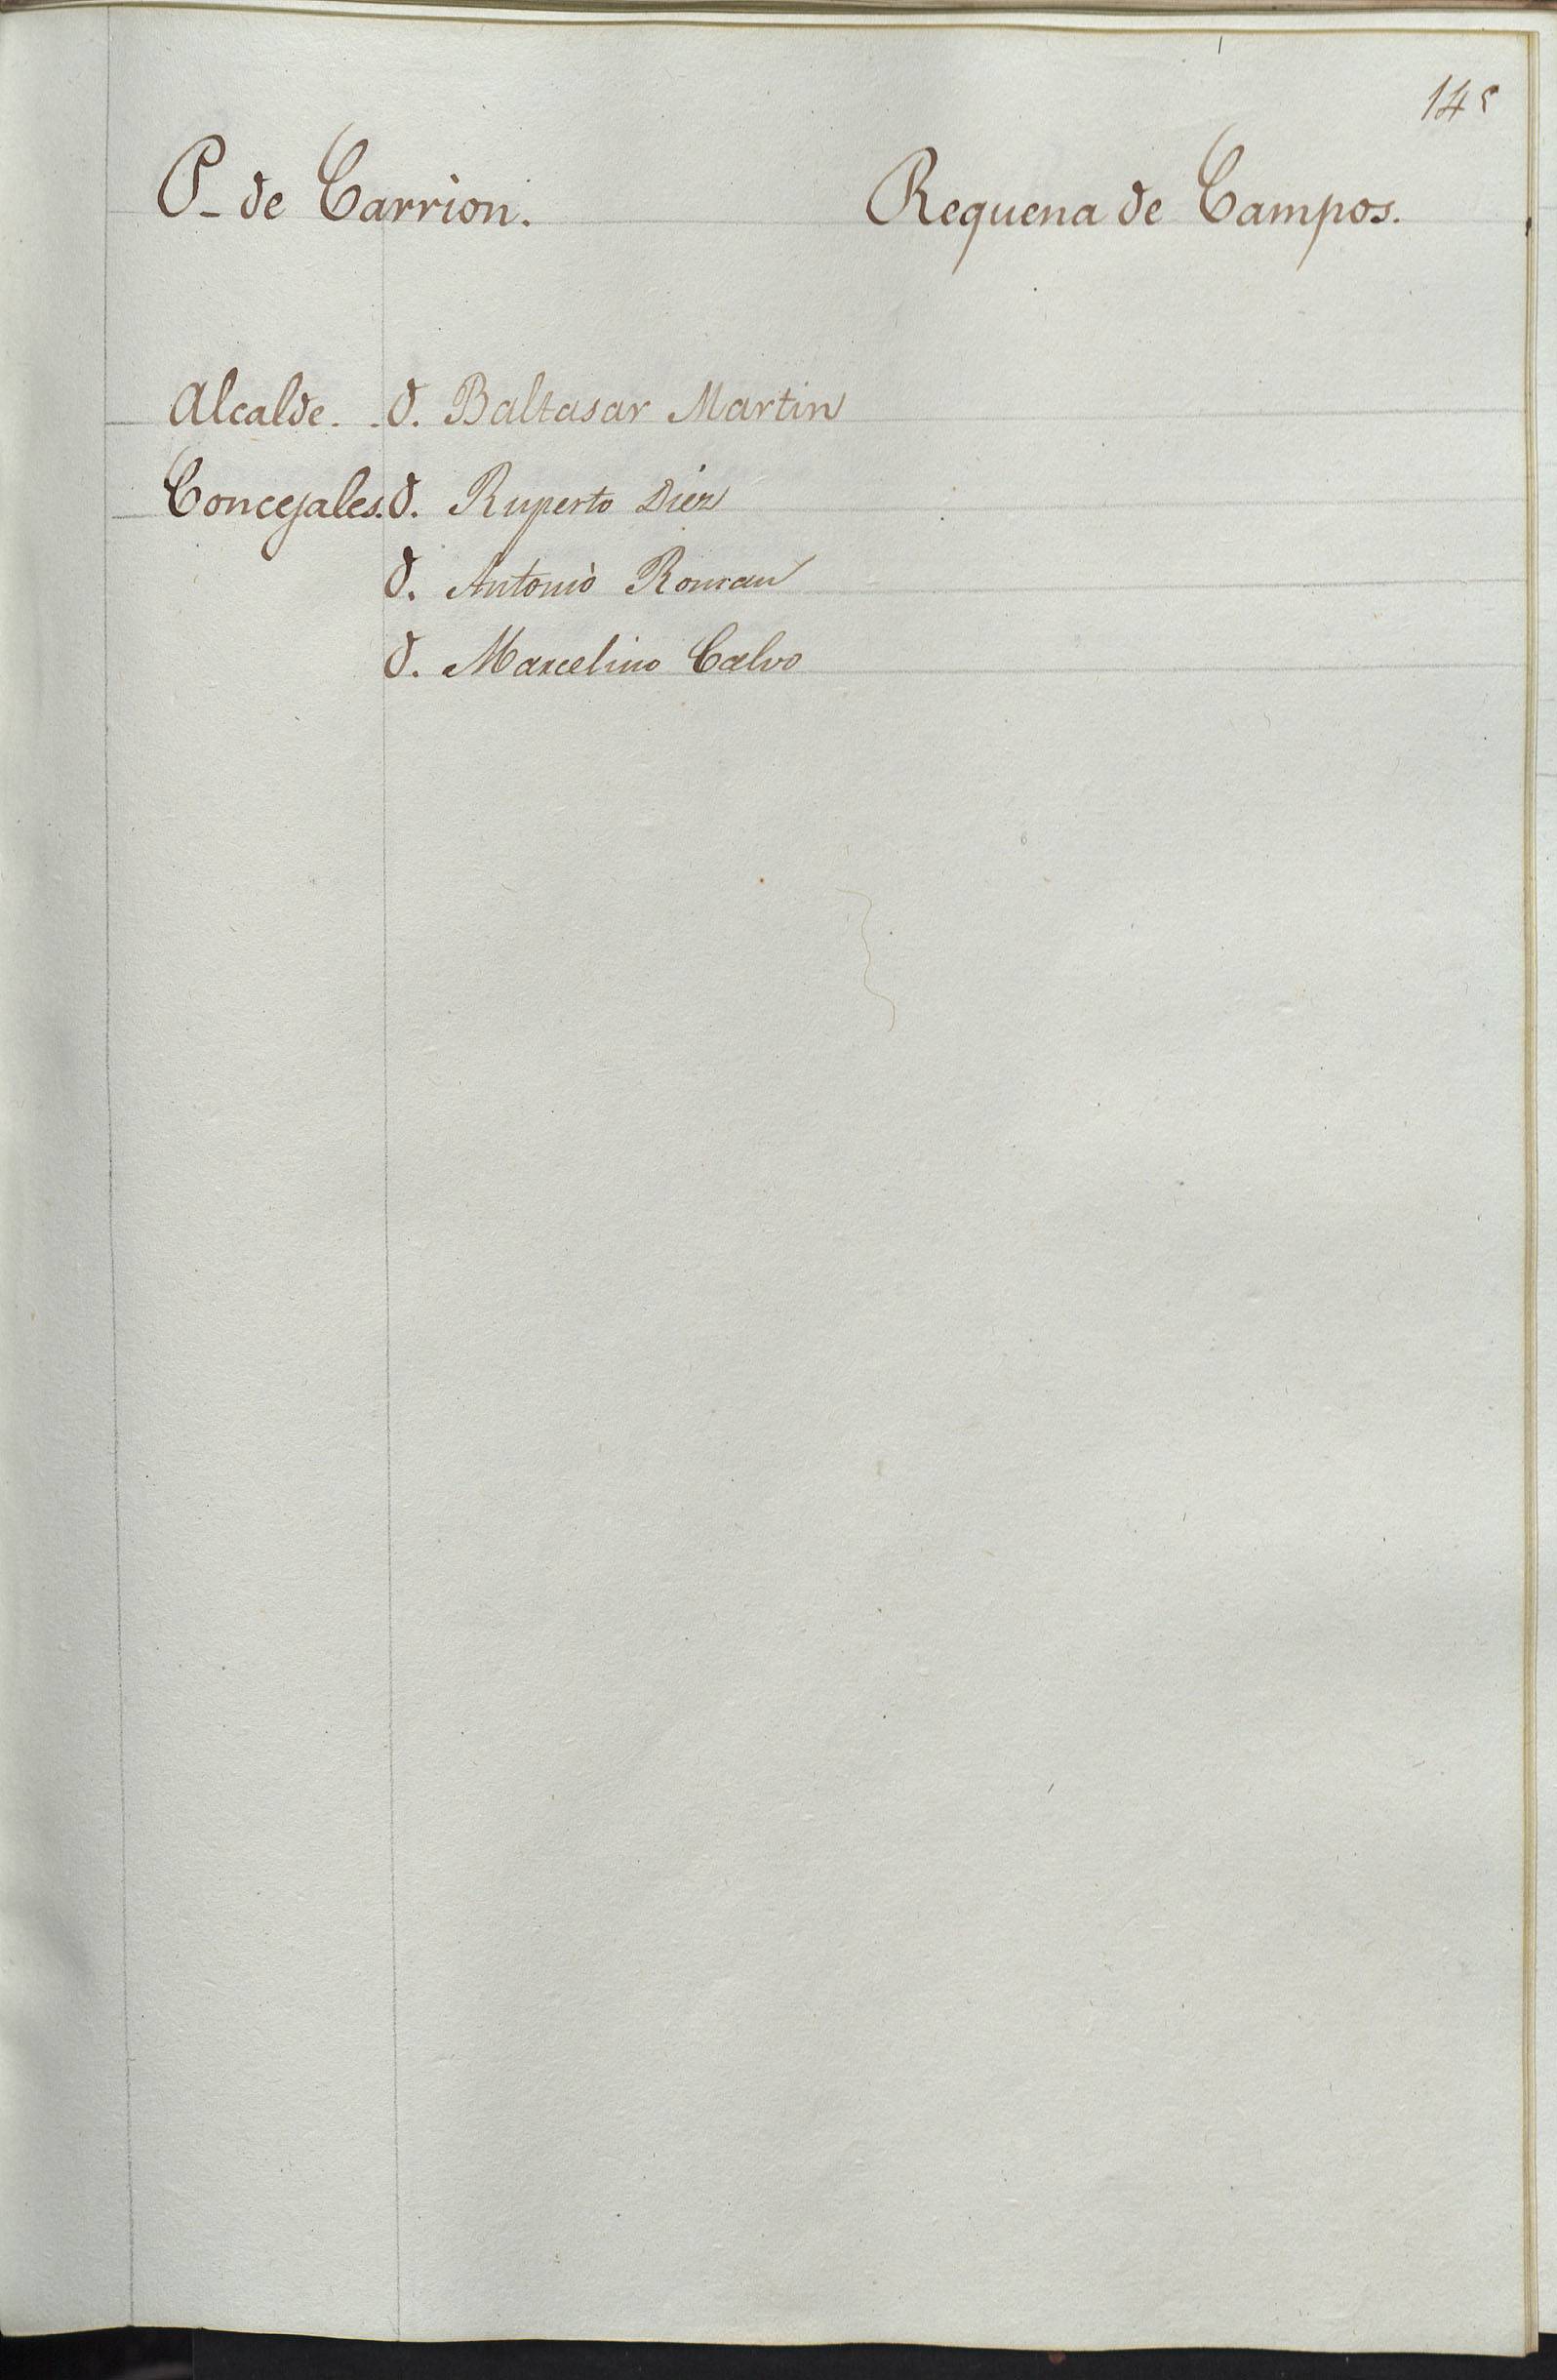 145
P. de Carrion. Requena de Campos.
Alcalde. . D. Baltasar Martin
Concejales. D. Ruperto Diez
D. Antonio Roman
D. Marcelino Calvo